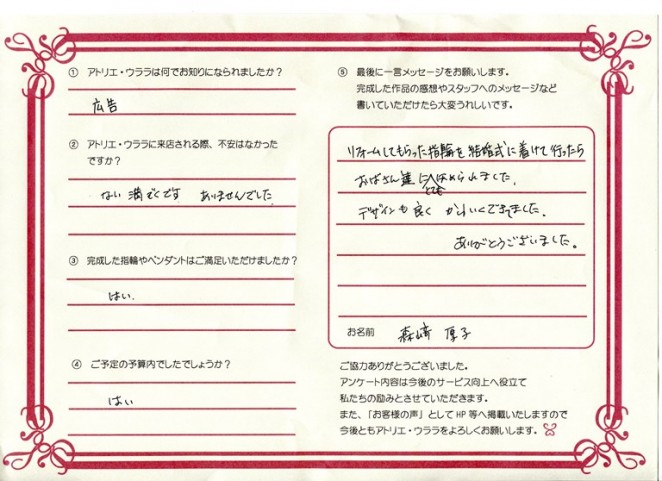 ① アトリエ・ウララは何でお知りになられましたか?
広告
② アトリエ・ウララに来店される際、不安はなかった
ですか?
ない 満ぞくです ありませんでした
③ 完成した指輪やペンダントはご満足いただけましたか?
はい.
④ ご予定の予算内でしたでしょうか?
はい
⑤ 最後に一言メッセージをお願いします。
完成した作品の感想やスタッフへのメッセージなど
書いていただけたら大変うれしいです。
リフォームしてもらった指輪を結婚式に着けて行ったら
おばさん達にとてもほめられました.
デザインも良く かわいくできてました.
ありがとうございました。
お名前 森崎 厚子
ご協力ありがとうございました。
アンケート内容は今後のサービス向上へ役立て
私たちの励みとさせていただきます。
また、「お客様の声」としてHP等へ掲載いたしますので
今後ともアトリエ・ウララをよろしくお願いします。